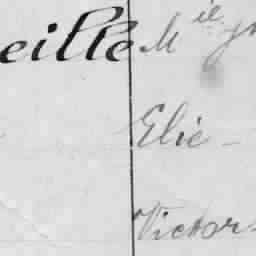 eille Mie
Elie -
Victor